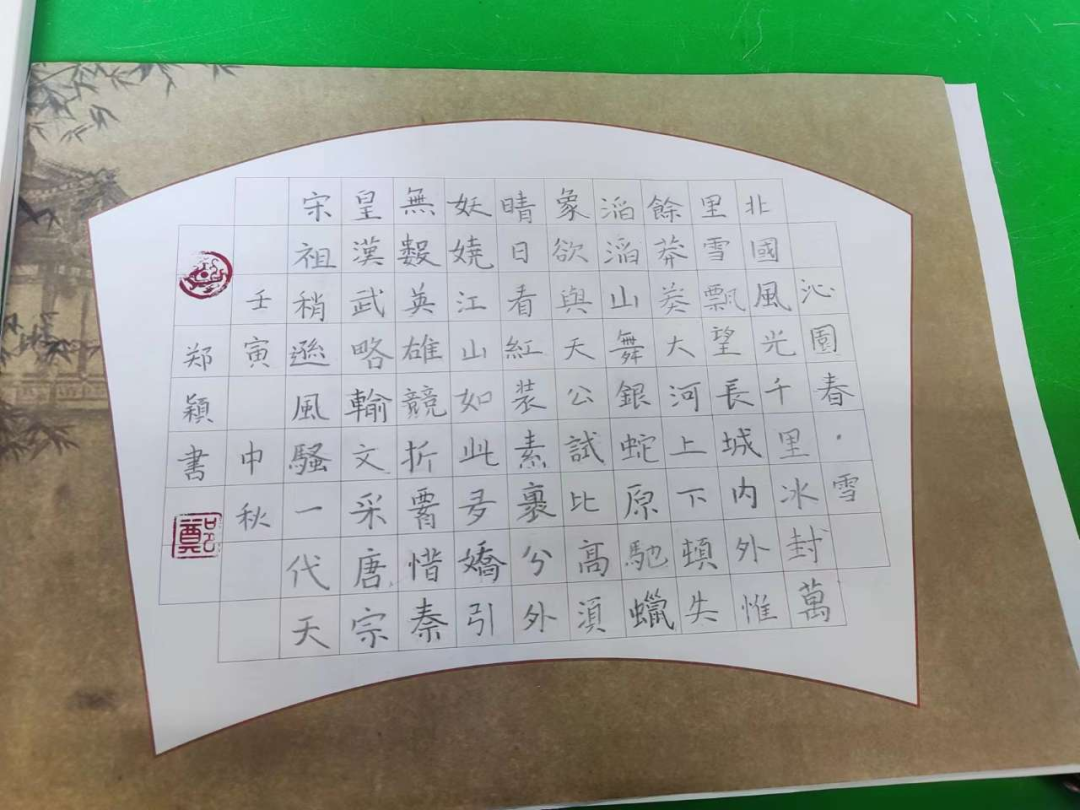 沁園春·雪
北國風光千里冰封萬
里雪飄望長城内外惟
餘莽莽大河上下頓失
滔滔山舞銀蛇原馳蠟
象欲與天公試比高湏
晴日看紅装素裹分外
妖嬈江山如此多嬌引
無數英雄競折腰惜秦
皇漢武略輸文采唐宗
宋祖稍遜風騷一代天
壬寅 中秋
郑穎書